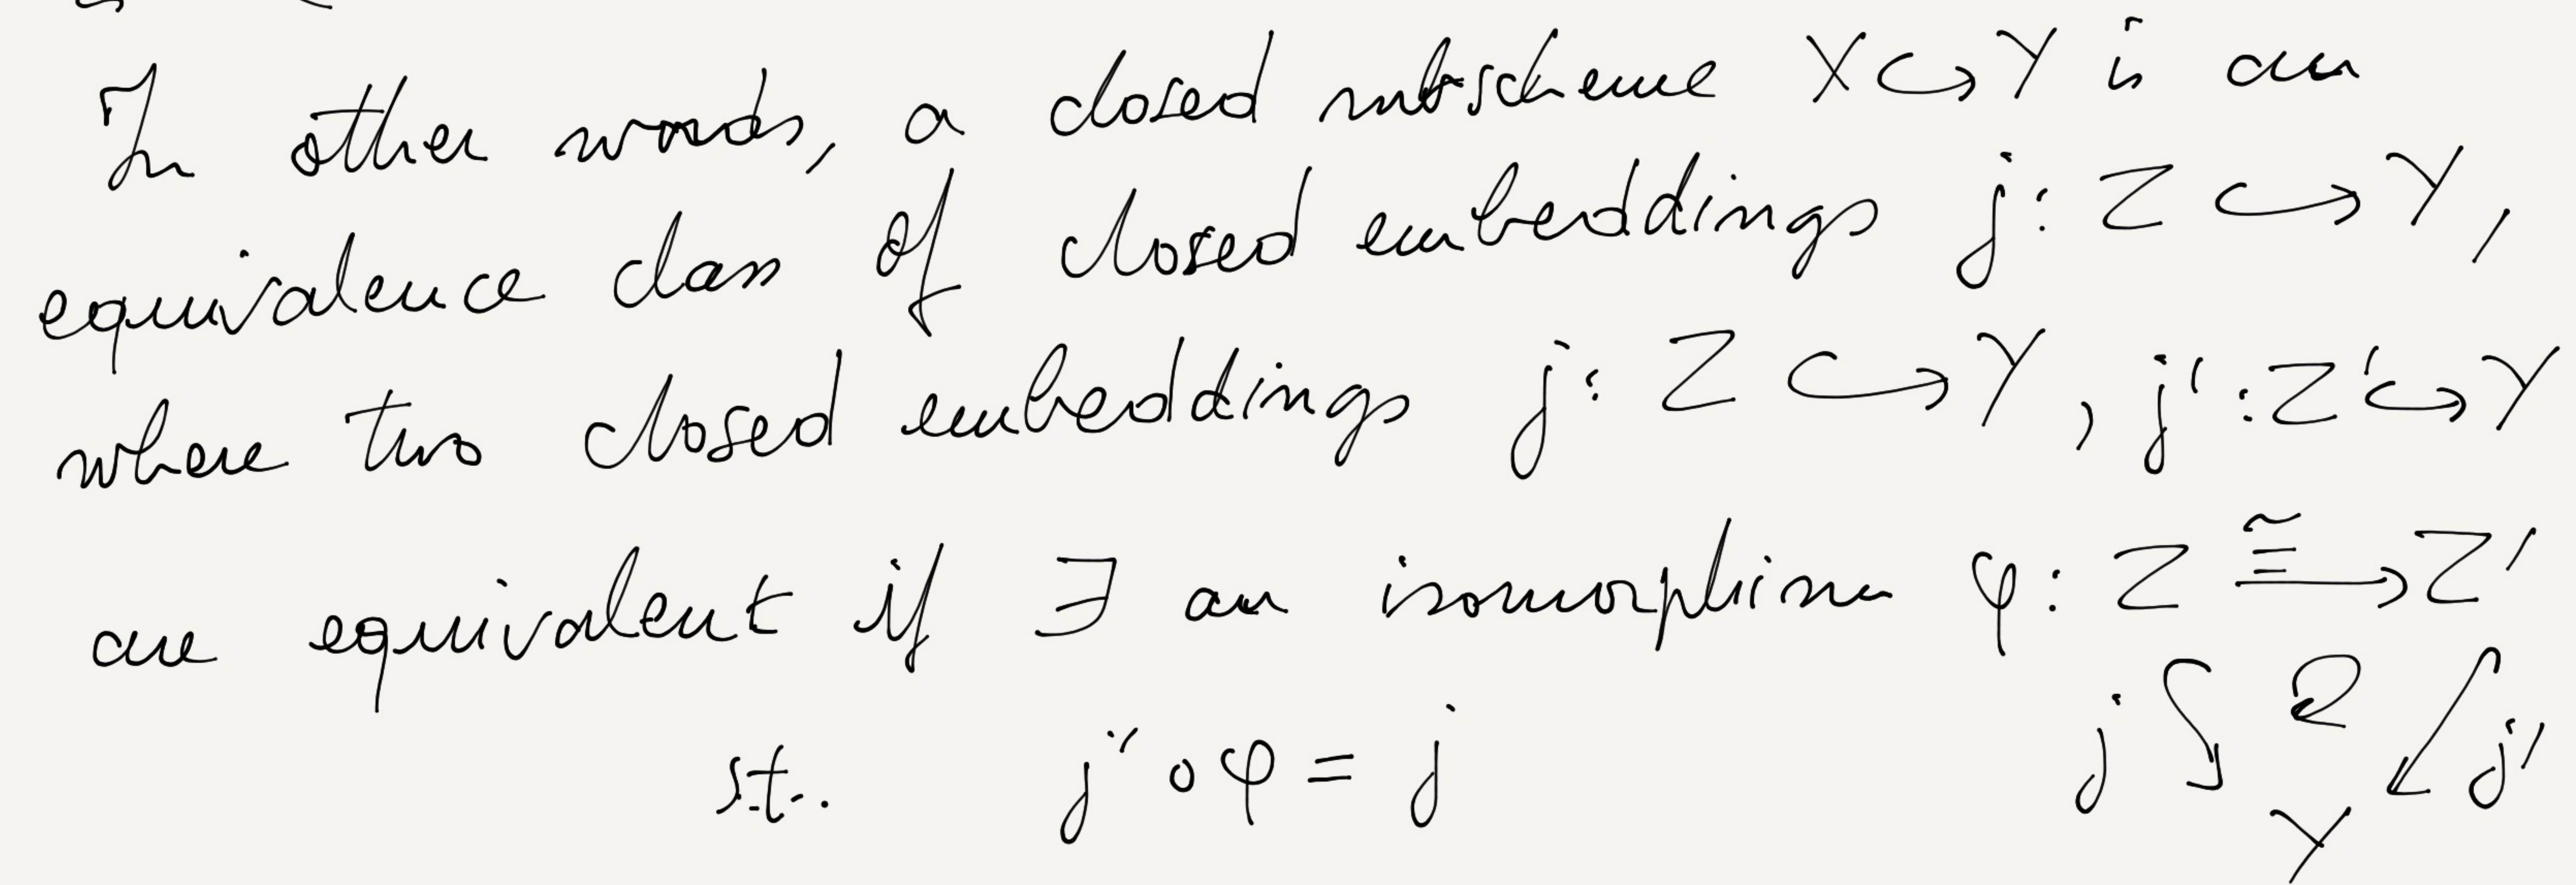 In other words, a closed subscheme X ↪ Y is an
equivalence class of closed embeddings j: Z ↪ Y,
where two closed embeddings j: Z ↪ Y, j': Z' ↪ Y
are equivalent if ∃ an isomorphism φ: Z ≅→ Z'
s.t. j' ∘ φ = j
j ↪ ↻ ↩ j'
Y